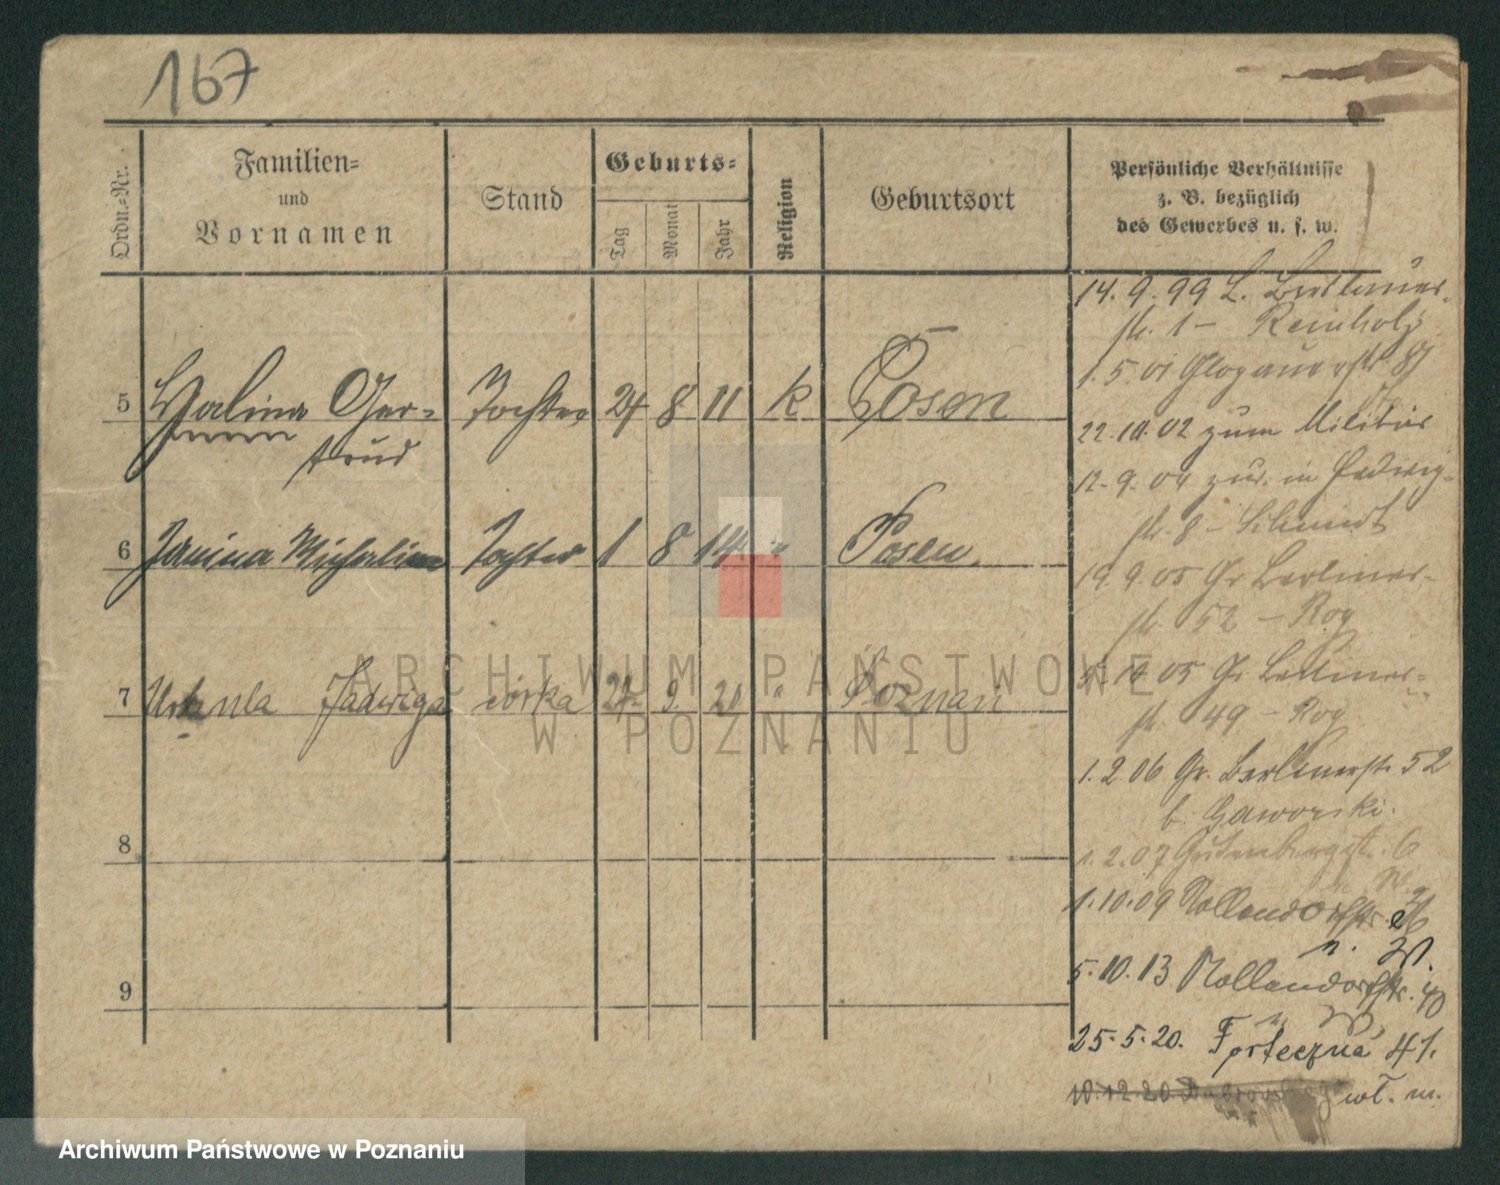 167
Ordn.-Nr.
Familien-
und
Vornamen
Stand
Geburts-
Tag
Monat
Jahr
Religion
Geburtsort
Persönliche Verhältnisse
z. B. bezüglich
des Gewerbes u. s. w.
5 Halina Ger- Tochter 24 8 11 k Posen
trud
6 Janina Michalina Tochter 1 8 14 " Posen
7 Urszula Jadwiga córka 21 9. 20 " Poznań
8
9
14. 9. 99
str. 1 - Reinholz
1. 5. 01 Glogauerstr
22. 10. 02 zum Militär
12. 9. 04 zur. in Hedwig-
str. 8 - Schmidt
19. 9. 05 Gr Berliner-
str. 52 - Roy
10 05 Gr Berliner-
str. 49 - Roy
1. 2 06 Gr. Berlinerstr. 52
b. Gaworski.
1. 2. 07 Gutenbergstr. 6
1. 10. 09 Nollendorfstr.
n. W.
5. 10. 13 Nollendorfstr. 40
n. W.
25. 5. 20. Forteczna 41.
10. 12. 20 wł. m.
ARCHIWUM PAŃSTWOWE
W POZNANIU
Archiwum Państwowe w Poznaniu